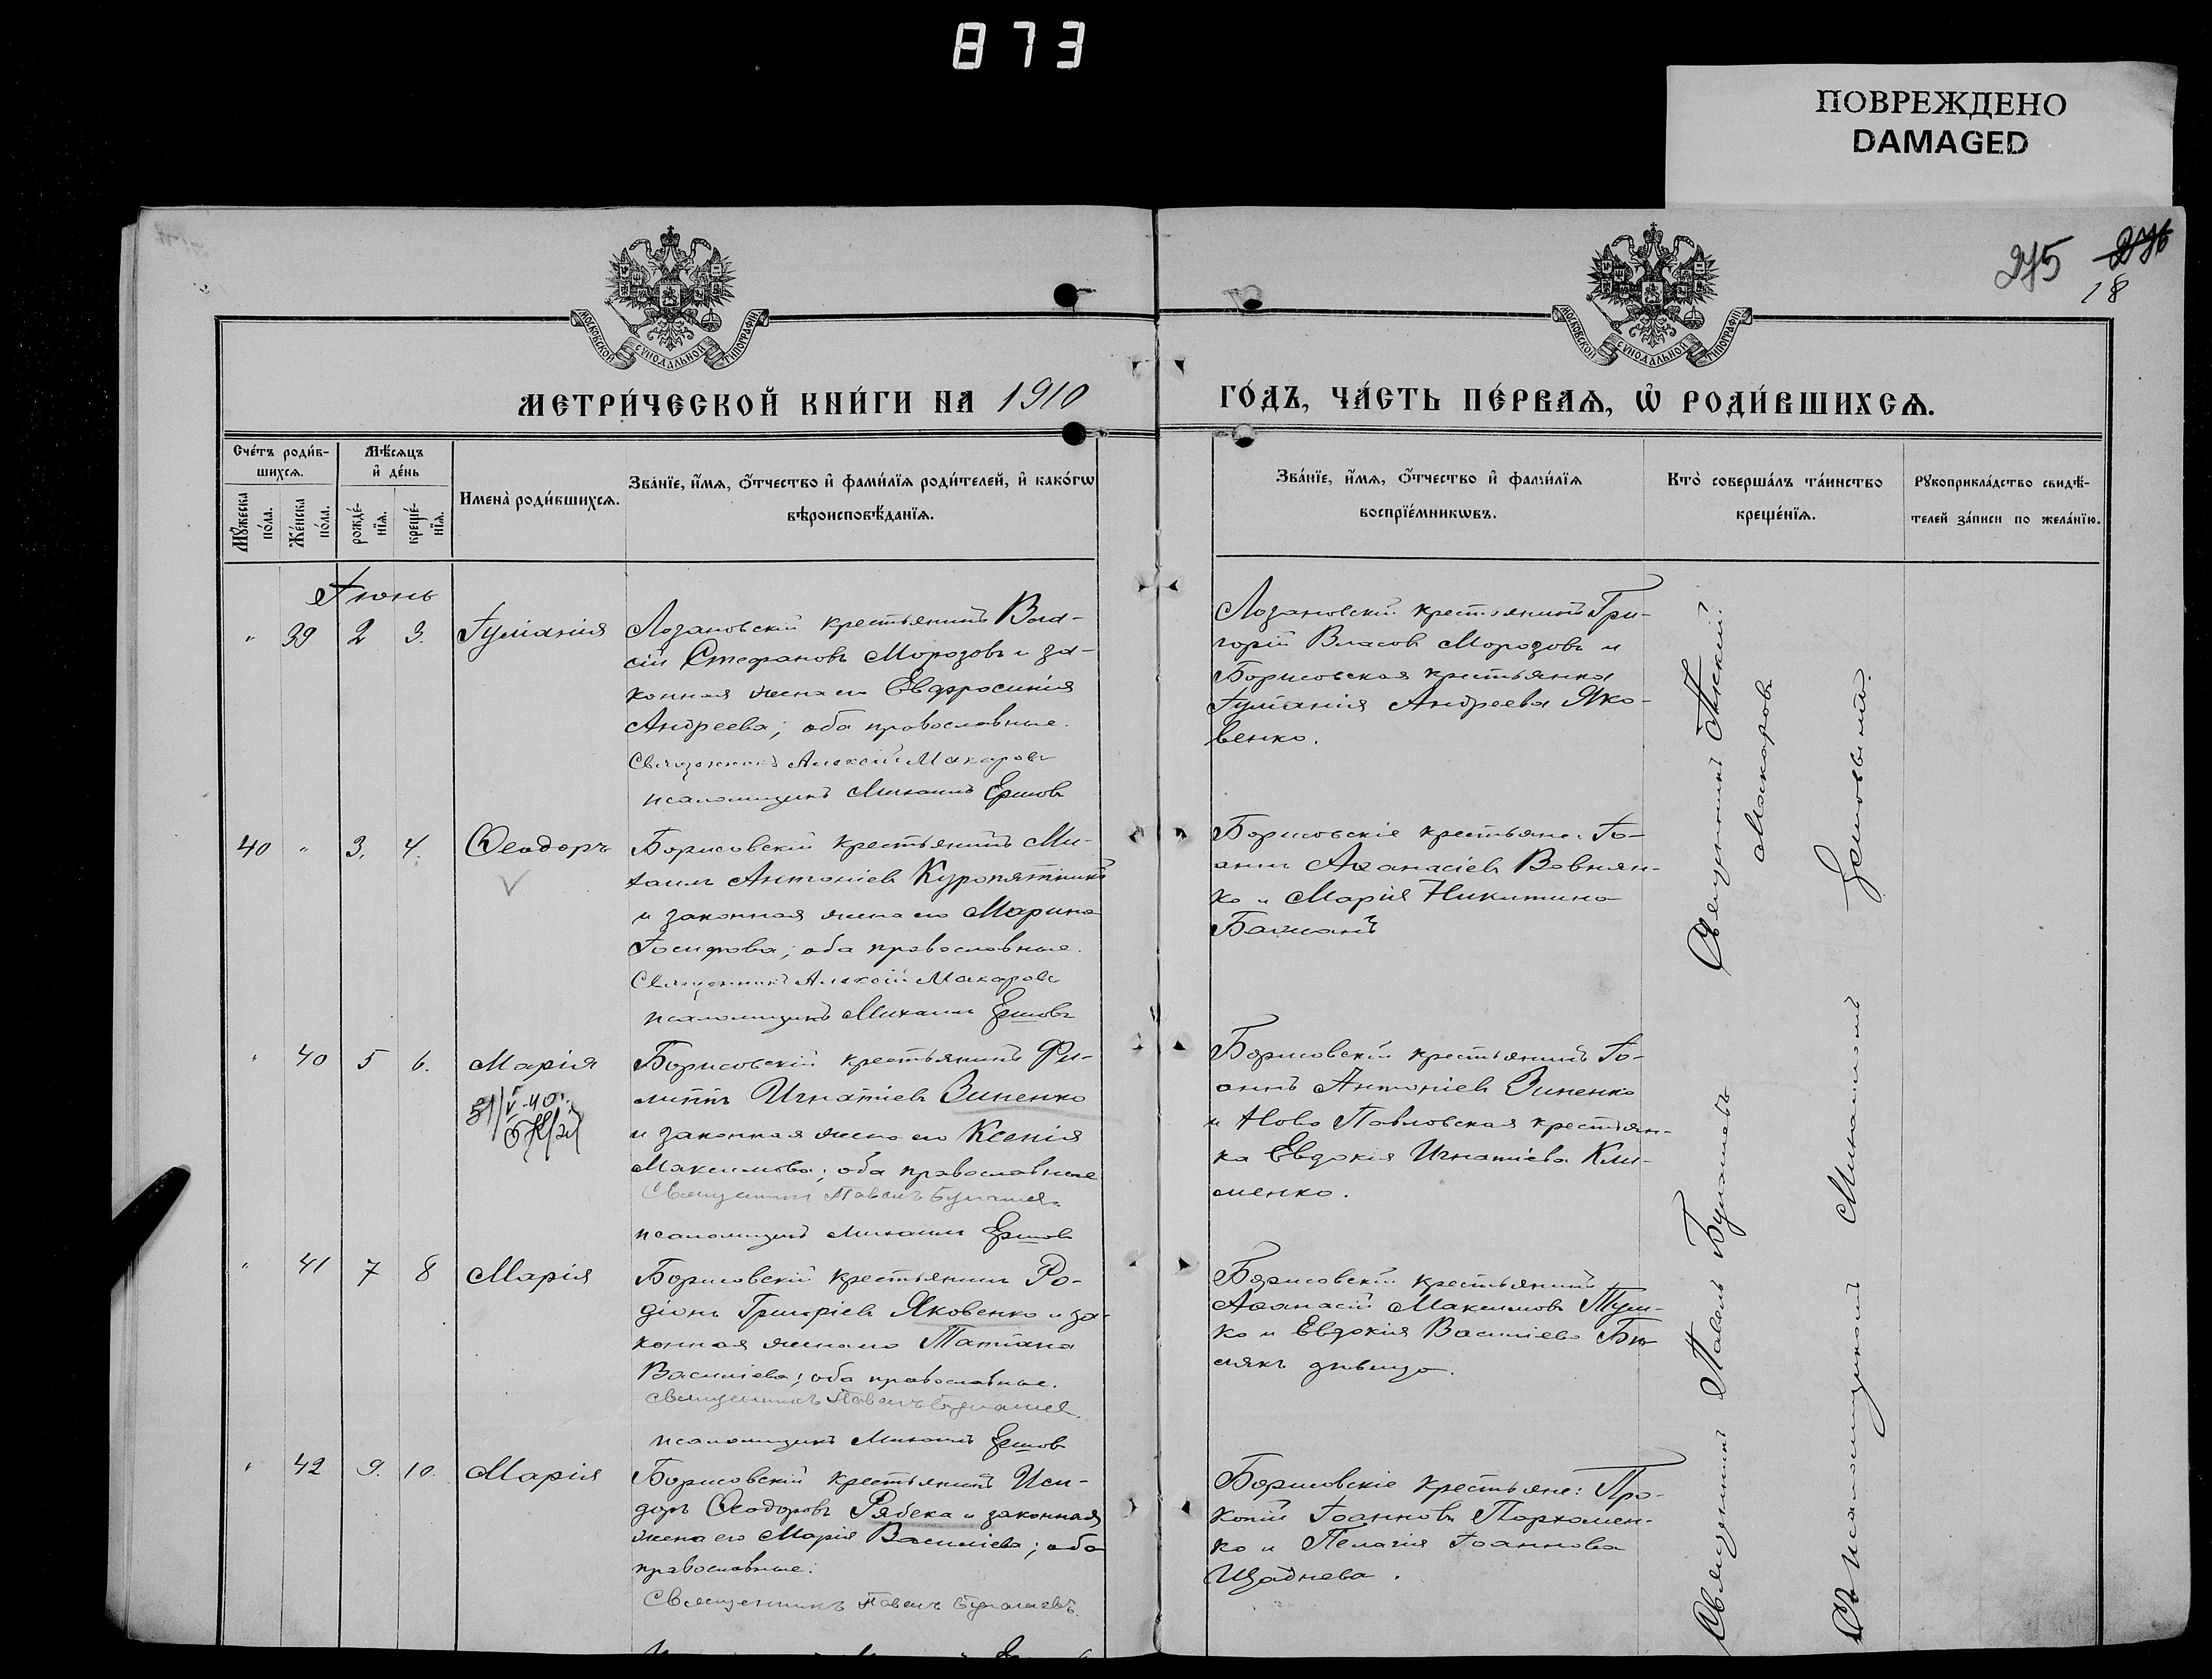 873
ПОВРЕЖДЕНО
DAMAGED
275 276
18
МОСКОВСКОЙ СУНОДАЛЬНОЙ ТИПОГРАФІИ
МОСКОВСКОЙ СУНОДАЛЬНОЙ ТИПОГРАФІИ
МЕТРИ́ЧЕСКОЙ КНИ́ГИ НА 1910
ГО́ДЪ, ЧА́СТЬ ПЕ́РВАѦ, Ѡ РОДИ́ВШИХСѦ.
Сче́тъ роди́в-
шихсѧ.
Мꙋ́жеска по́ла.
Же́нска по́ла.
Мѣ́сѧцъ
и҆ де́нь
рожде́-
нїѧ.
креще́-
нїѧ.
Имена̀ роди́вшихсѧ.
Зва́нїе, и҆́мѧ, о҆́тчество и҆ фами́лїѧ роди́телей, и҆ како́гѡ
вѣроисповѣ́данїѧ.
Зва́нїе, и҆́мѧ, о҆́тчество и҆ фами́лїѧ
воспрїе́мникѡвъ.
Кто̀ соверша́лъ та́инство
креще́нїѧ.
Рꙋкоприкла́дство свидѣ́-
телей за́писи по жела́нїю.
Іюнь
" 39 2 3. Іуліанія
Лозановскій крестьянинъ Вла-
сій Стефановъ Морозовъ и за-
конная жена его Евфросинія
Андреева; оба православные.
Священникъ Алексій Макаровъ
псаломщикъ Михаилъ Ершовъ
Лозановскій крестьянинъ Гри-
горій Власовъ Морозовъ и
Борисовская крестьянка
Іуліанія Андреева Яко-
венко.
40 " 3. 4. Ѳеодоръ
Борисовскій крестьянинъ Ми-
хаилъ Антоніевъ Куропятникъ
и законная жена его Марина
Іосифова; оба православные.
Священникъ Алексій Макаровъ
псаломщикъ Михаилъ Ершовъ
Борисовскіе крестьяне: Іо-
аннъ Аѳанасіевъ Вовнян-
ко и Марія Никитина
Бажанъ
" 40 5 6. Марія
Борисовскій крестьянинъ Фи-
липпъ Игнатіевъ Зиненко
и законная жена его Ксенія
Максимова; оба православные
Священникъ Павелъ Бугашевъ
псаломщикъ Михаилъ Ершовъ
Борисовскій крестьянинъ Іо-
аннъ Антоніевъ Зиненко
и Ново Павловская крестьян-
ка Евдокія Игнатіева Кли-
менко.
" 41 7 8 Марія
Борисовскій крестьянинъ Ро-
діонъ Григоріевъ Яковенко и за-
конная жена его Татіана
Василіева; оба православные.
Священникъ Павелъ Бугашевъ
псаломщикъ Михаилъ Ершовъ
Борисовскій крестьянинъ
Аѳанасій Максимовъ
ко и Евдокія Василіева
дѣвица.
" 42 9. 10. Марія
Борисовскій крестьянинъ Иси-
доръ Ѳеодоровъ Рябека и законная
жена его Марія Василіева; оба
православные.
Священникъ Павелъ Бугашевъ
Борисовскіе крестьяне: Про-
копій Іоанновъ Пархомен-
ко и Пелагія Іоаннова
Щаднева.
Священникъ Алексій
Макаровъ
Священникъ Павелъ Бугашевъ
Псаломщикъ Михаилъ Ершовъ